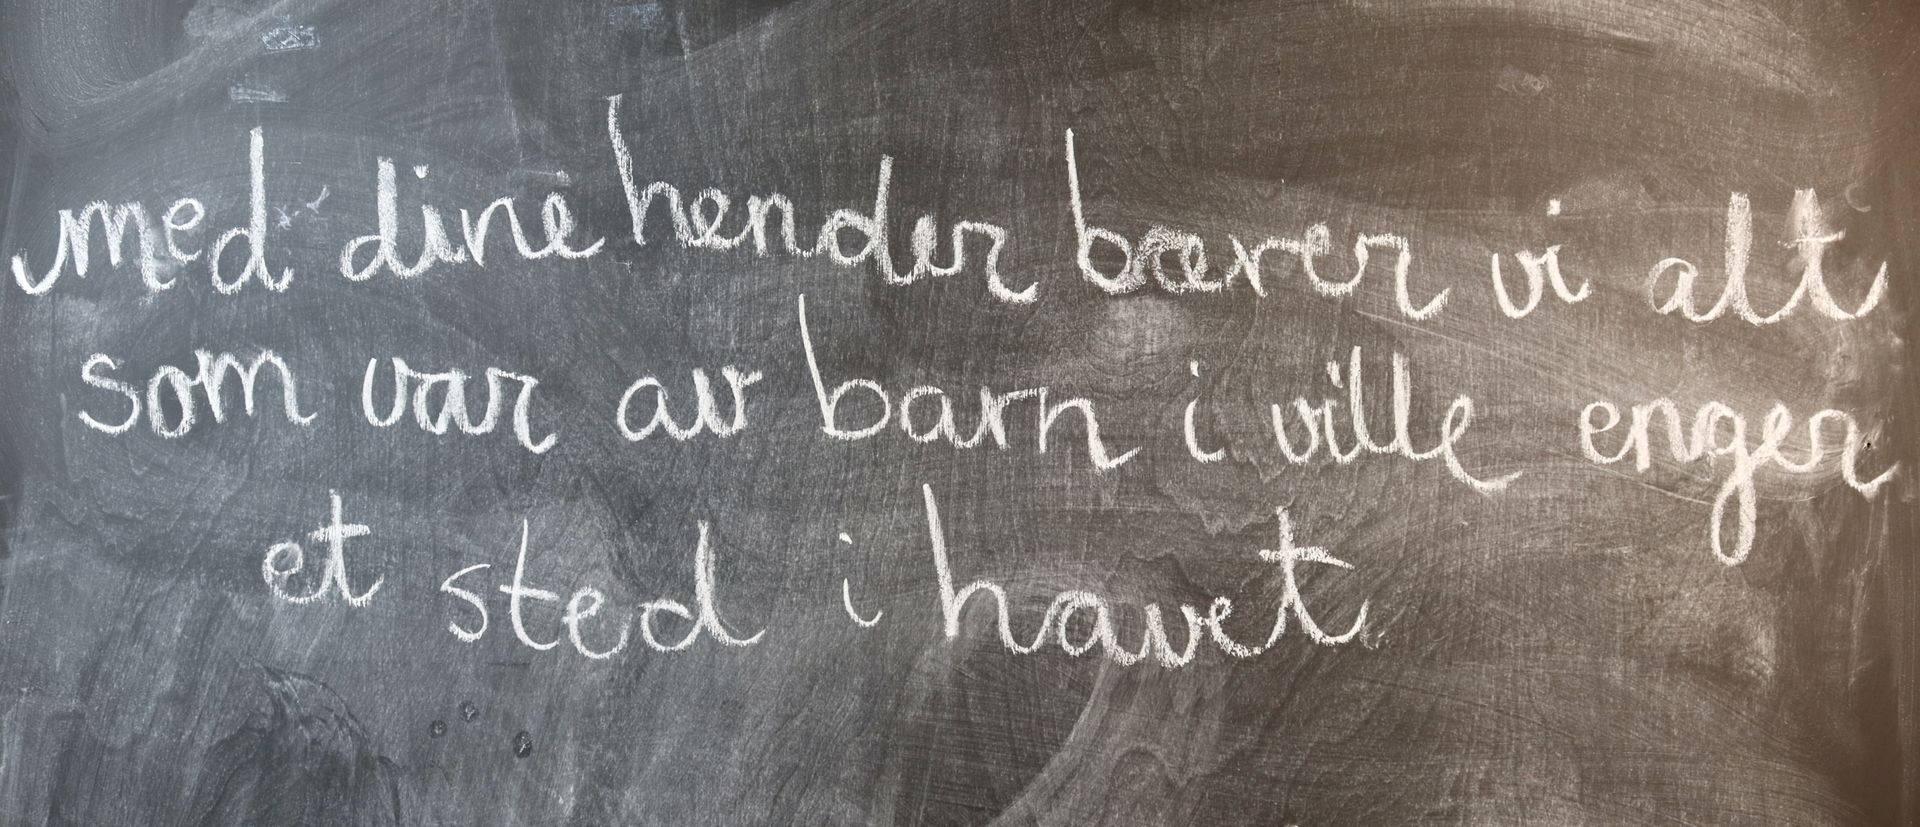 med dine hender bærer vi alt
som var av barn i ville enger
et sted i havet